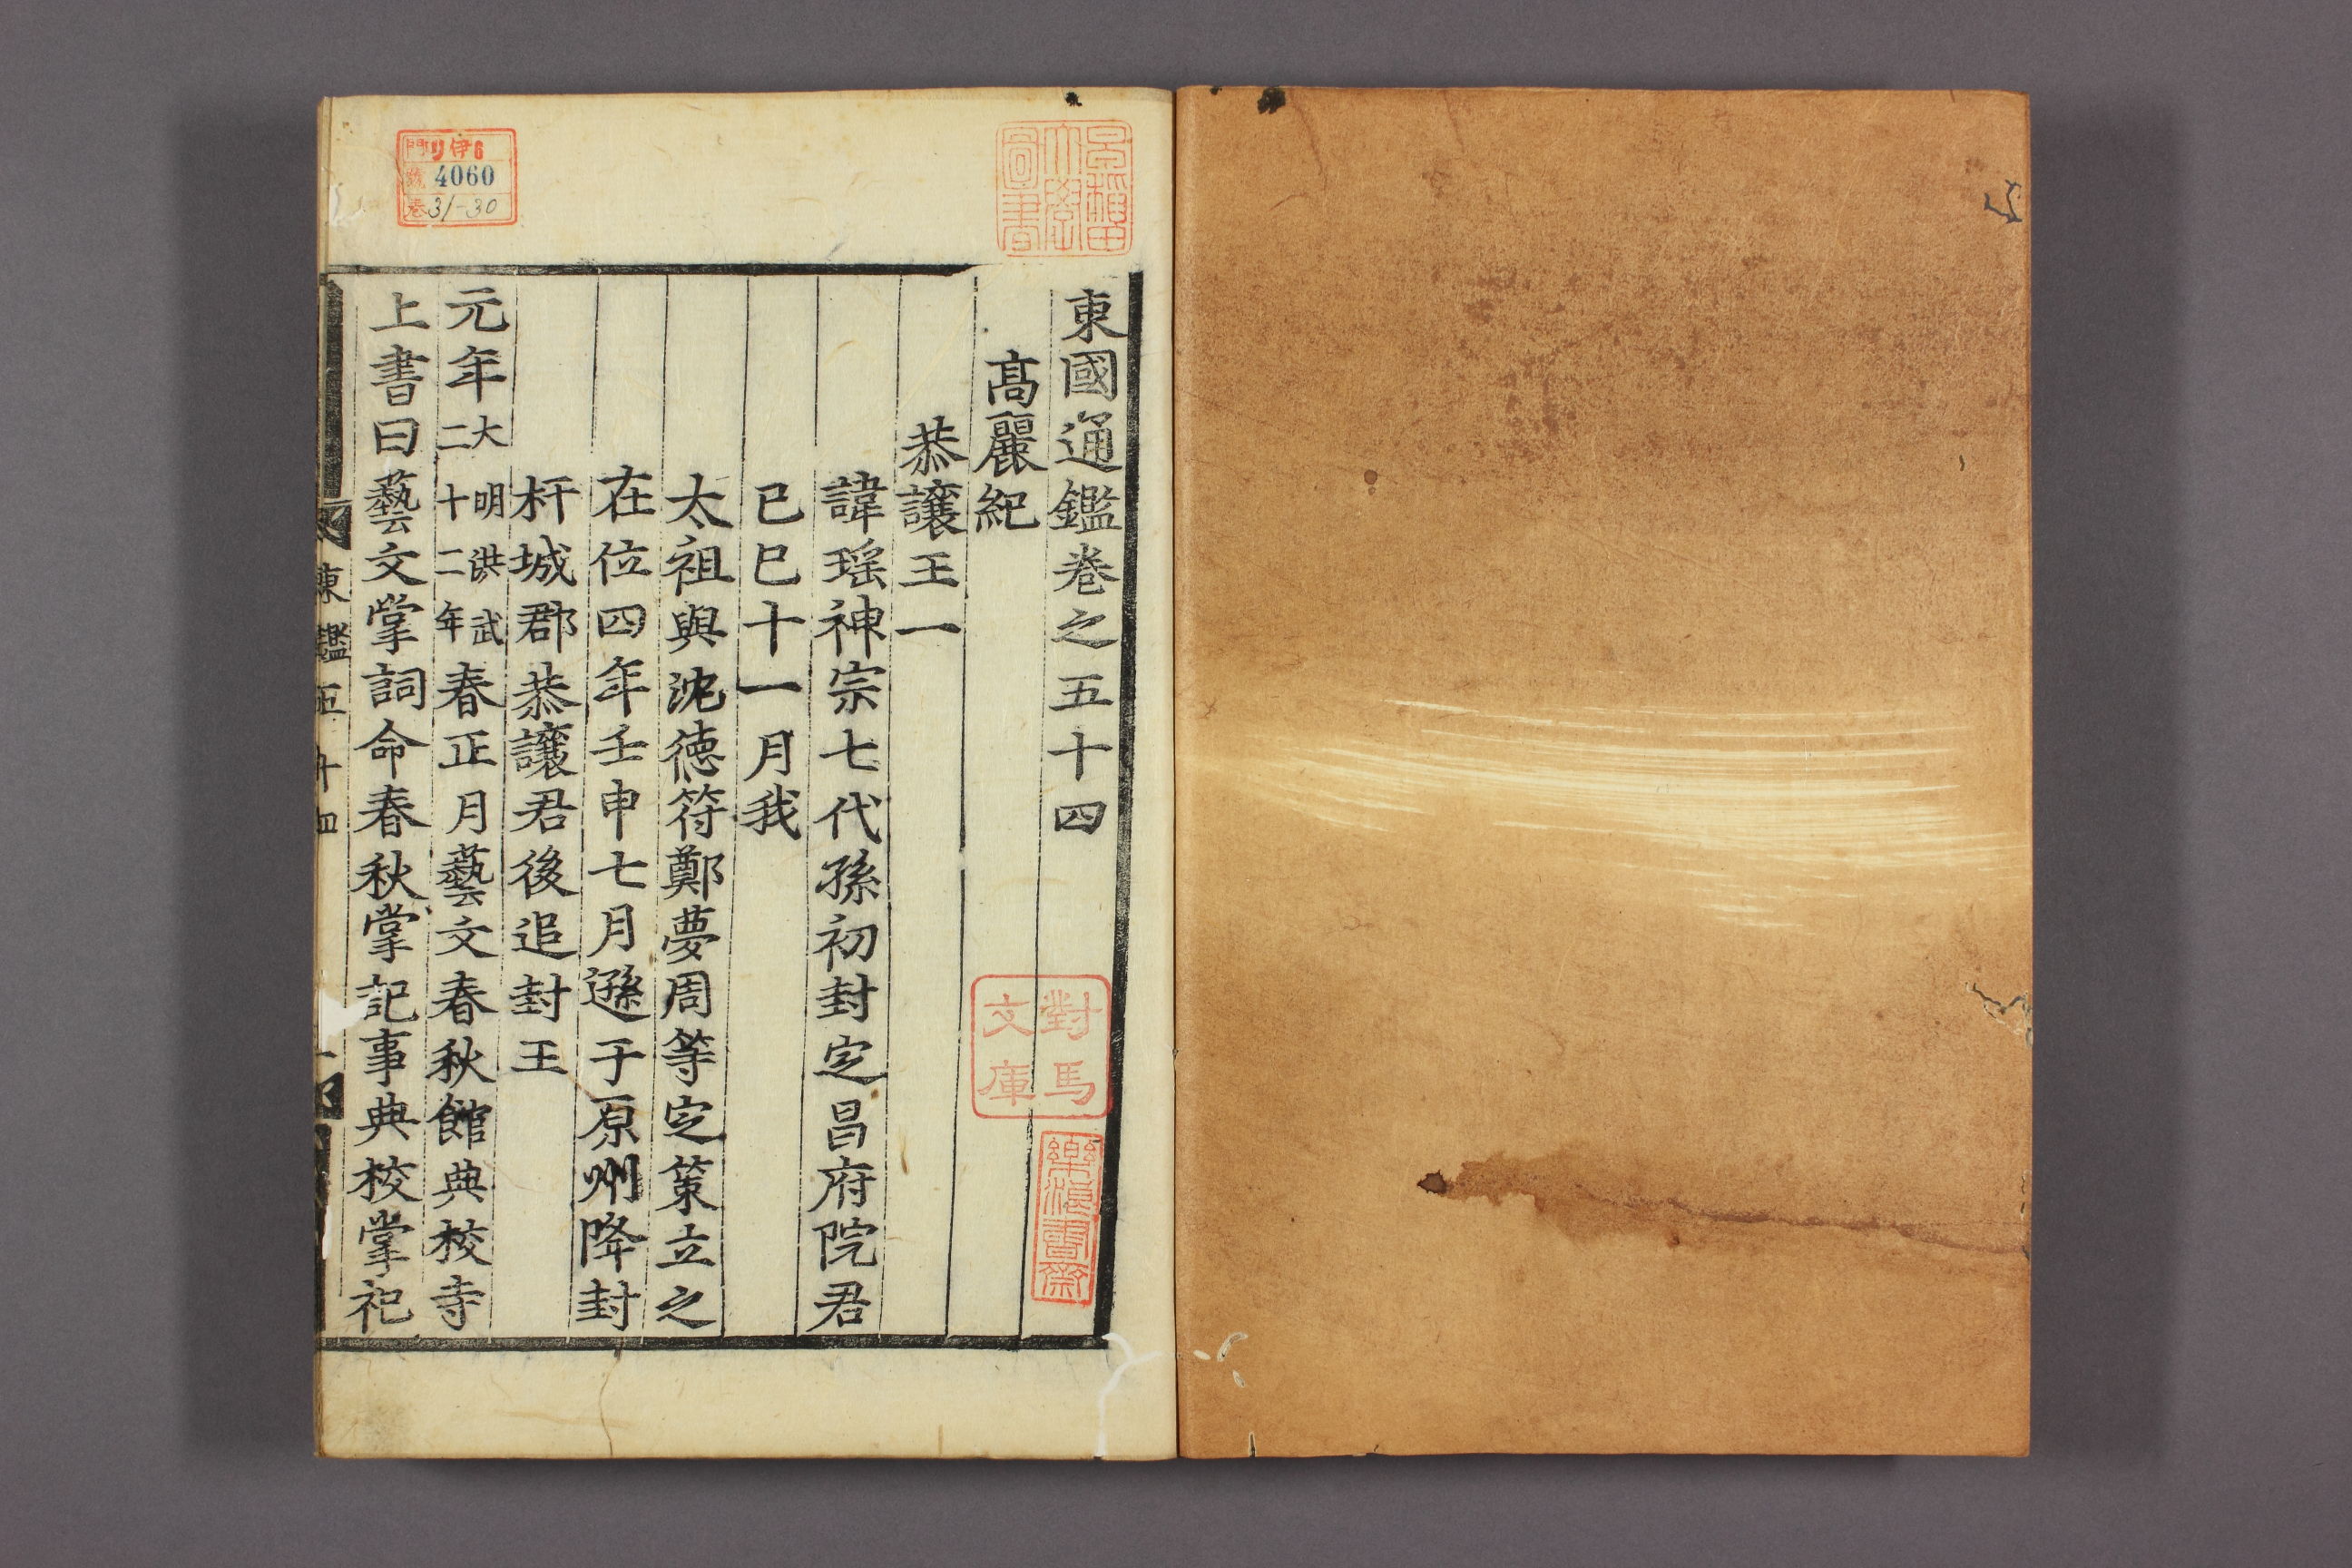 東國通鑑卷之五十四
高麗紀
恭讓王一
諱瑶神宗七代孫初封定昌府院君
已巳十一月我
太祖與沈德符鄭夢周等定策立之
在位四年壬申七月遜于原州降封
杆城郡恭讓君後追封王
元年大明洪武二十二年春正月藝文春秋館典校寺
上書曰藝文掌詞命春秋掌記事典校掌祀
東鑑五十四
早稲田大學圖書
對馬文庫
樂浪書齋
門 リ伊6
號 4060
卷 31-30